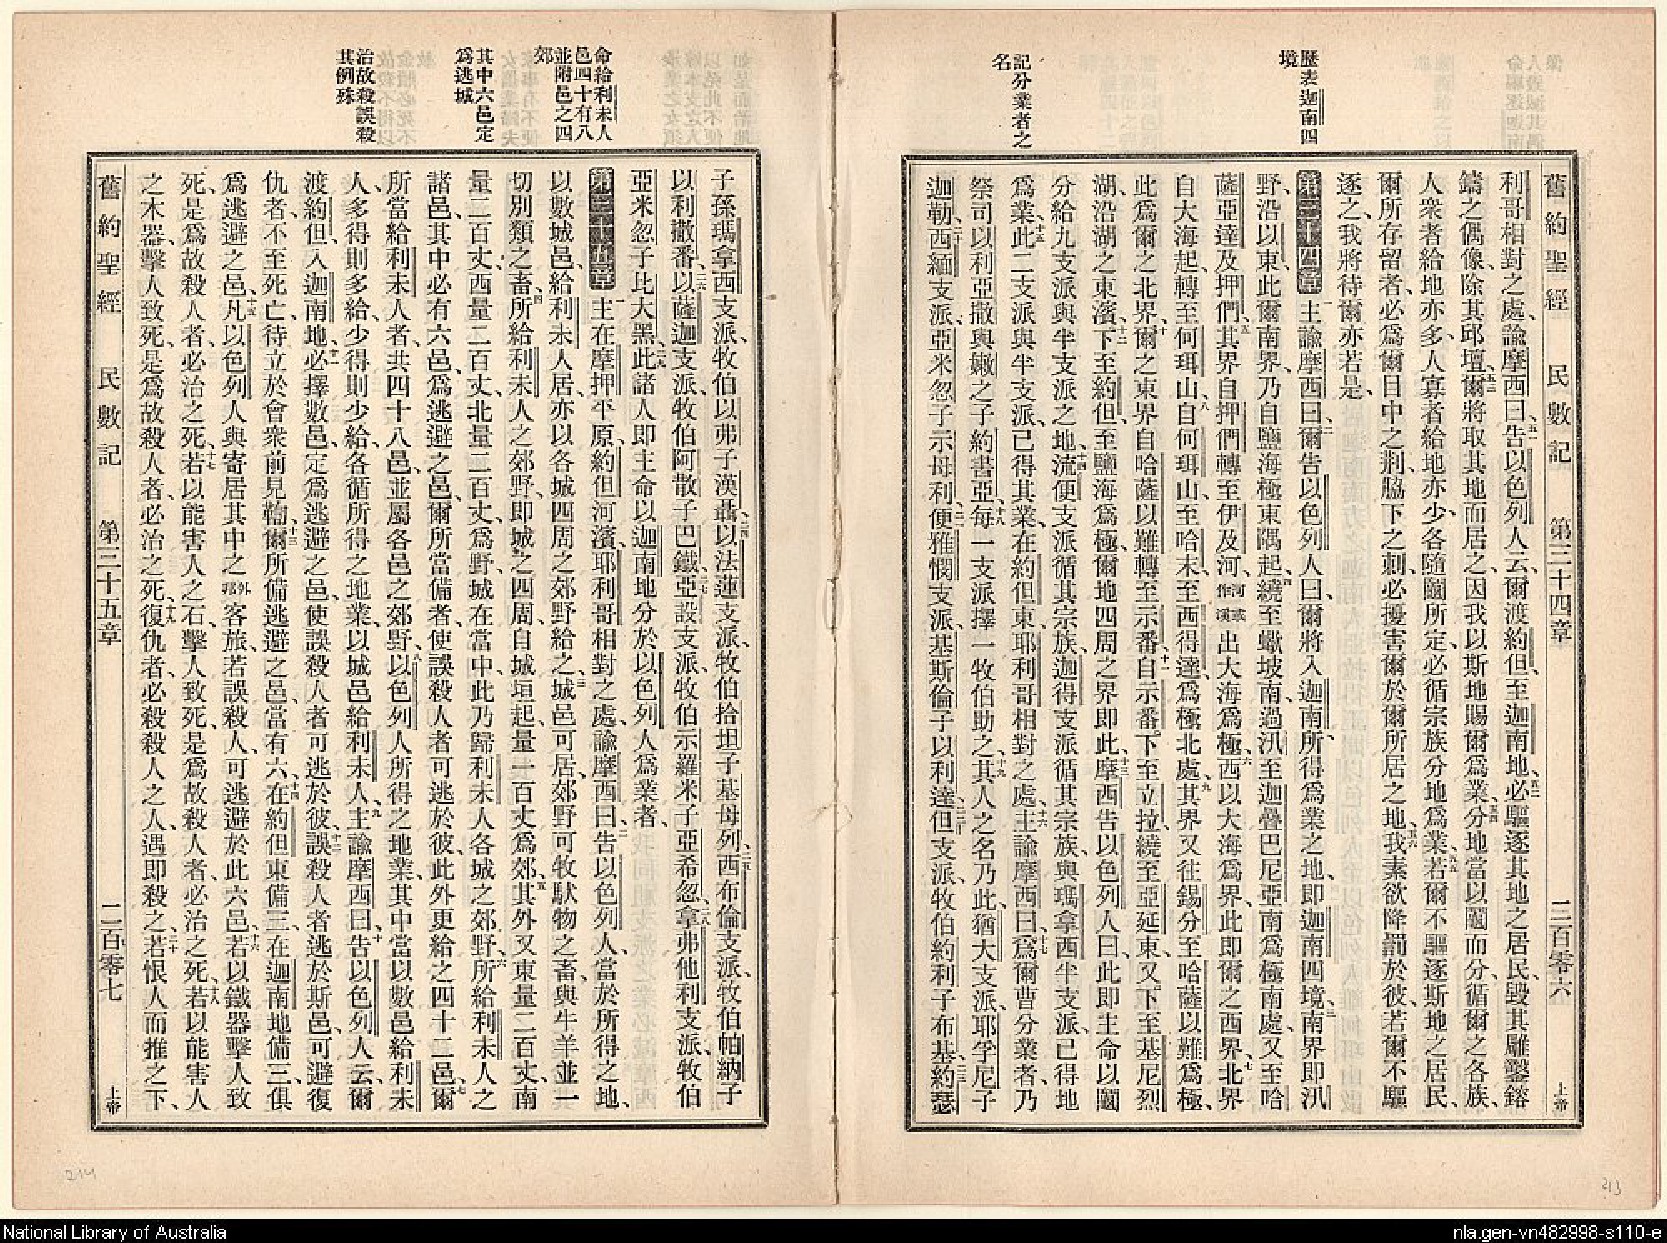 舊約聖經 民數記 第三十四章 二百零六 上帝
歷表迦南四
境
記分業者之
名
利哥相對之處、諭摩西曰、五一告以色列人云、爾渡約但、至迦南地、五二必驅逐其地之居民、毀其雕鑿鎔
鑄之偶像、除其邱壇、五三爾將取其地而居之、因我以斯地賜爾爲業、五四分地當以鬮而分、循爾之各族、
人衆者給地亦多、人寡者給地亦少、各隨鬮所定、必循宗族分地爲業、五五若爾不驅逐斯地之居民、
爾所存留者、必爲爾目中之荆、脇下之刺、必擾害爾於爾所居之地、五六我素欲降罰於彼、若爾不驅
逐之、我將待爾亦若是、
第三十四章 一主諭摩西曰、二爾告以色列人曰、爾將入迦南、所得爲業之地、卽迦南四境、三南界卽汛
野、沿以東、此爾南界、乃自鹽海極東隅起、四繞至蠍坡南、過汛至迦疊巴尼亞南爲極南處、又至哈
薩亞達及押們、五其界自押們轉至伊及河、河或作溪出大海爲極、六西以大海爲界、此卽爾之西界、七北界
自大海起、轉至何珥山、八自何珥山、至哈末、至西得達、爲極北處、九其界又往錫分、至哈薩以難爲極、
此爲爾之北界、十爾之東界自哈薩以難、轉至示番、十一自示番、下至立拉、繞至亞延東、又下至基尼烈
湖、沿湖之東濱、十二下至約但、至鹽海爲極、爾地四周之界卽此、十三摩西告以色列人曰、此卽主命以鬮
分給九支派與半支派之地、十四流便支派循其宗族、迦得支派循其宗族、與瑪拿西半支派、已得地
爲業、十五此二支派與半支派、已得其業、在約但東、耶利哥相對之處、十六主諭摩西曰、十七爲爾曹分業者、乃
祭司以利亞撒與嫩之子約書亞、十八每一支派擇一牧伯助之、十九其人之名乃此、猶大支派、耶孚尼子
迦勒、二十西緬支派、亞米忽子示母利、二一便雅憫支派、基斯倫子以利達、二二但支派、牧伯約利子布基、二三約瑟
命給利未人
邑四十有八
並附邑之四
郊
其中六邑定
爲逃城
治故殺誤殺
其例殊
子孫瑪拿西支派、牧伯以弗子漢聶、二四以法蓮支派、牧伯拾坦子基母列、二五西布倫支派、牧伯帕納子
以利撒番、二六以薩迦支派、牧伯阿散子巴鐵、二七亞設支派、牧伯示羅米子亞希忽、二八拿弗他利支派、牧伯
亞米忽子比大黑、二九此諸人卽主命以迦南地分於以色列人爲業者、
第三十五章 一主在摩押平原、約但河濱、耶利哥相對之處、諭摩西曰、二告以色列人、當於所得之地、
以數城邑給利未人居、亦以各城四周之郊野給之、三城邑可居、郊野可牧馱物之畜、與牛羊並一
切別類之畜、四所給利未人之郊野、卽城之四周、自城垣起、量一百丈爲郊、五其外又東量二百丈、南
量二百丈、西量二百丈、北量二百丈、爲野、城在當中、此乃歸利未人各城之郊野、六所給利未人之
諸邑、其中必有六邑、爲逃避之邑、爾所當備者、使誤殺人者可逃於彼、此外更給之四十二邑、七爾
所當給利未人者、共四十八邑、並屬各邑之郊野、八以色列人所得之地業、其中當以數邑給利未
人、多得則多給、少得則少給、各循所得之地業、以城邑給利未人、九主諭摩西曰、十告以色列人云、爾
渡約但、入迦南地、十一必擇數邑、定爲逃避之邑、使誤殺人者可逃於彼、十二誤殺人者逃於斯邑、可避復
仇者、不至死亡、待立於會衆前見鞫、十三爾所備逃避之邑、當有六、十四在約但東備三、在迦南地備三、俱
爲逃避之邑、十五凡以色列人與寄居其中之外邦客旅、若誤殺人、可逃避於此六邑、十六若以鐵器擊人致
死、是爲故殺人者、必治之死、十七若以能害人之石擊人致死、是爲故殺人者、必治之死、十八若以能害人
之木器擊人致死、是爲故殺人者、必治之死、十九復仇者必殺殺人之人、遇卽殺之、二十若恨人而推之下、
舊約聖經 民數記 第三十五章 二百零七 上帝
214
213
National Library of Australia
nla.gen-vn482998-s110-e